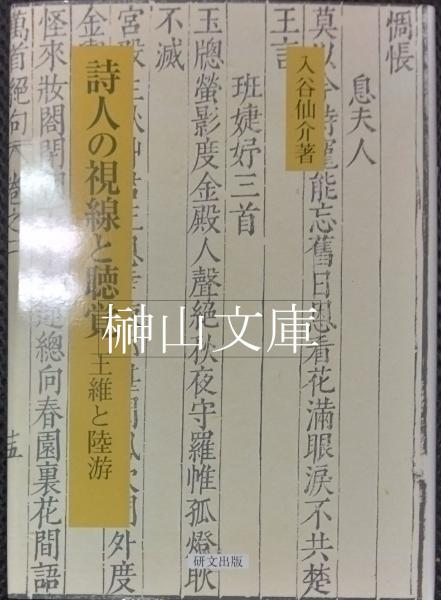 惆悵
息夫人
莫以今時寵能忘舊日恩看花滿眼淚不共楚
王言
班婕妤三首
玉牎螢影度金殿人聲絶秋夜守羅帷孤燈耿
不滅
宮殿生秋
外度
金
怪來妝閣閉
總向春園裏花間語
萬首絶句
卷之二
十五
入谷仙介著
詩人の視線と聴覚
王維と陸游
榊山文庫
研文出版